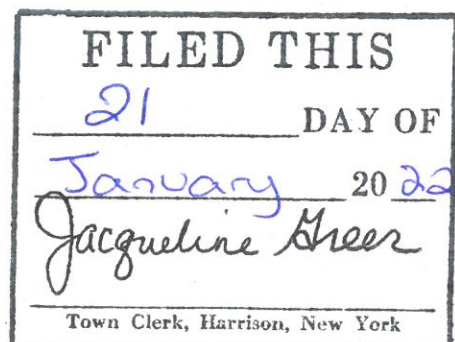 FILED THIS
21 DAY OF
January 20 22
Jacqueline Greer
Town Clerk, Harrison, New York